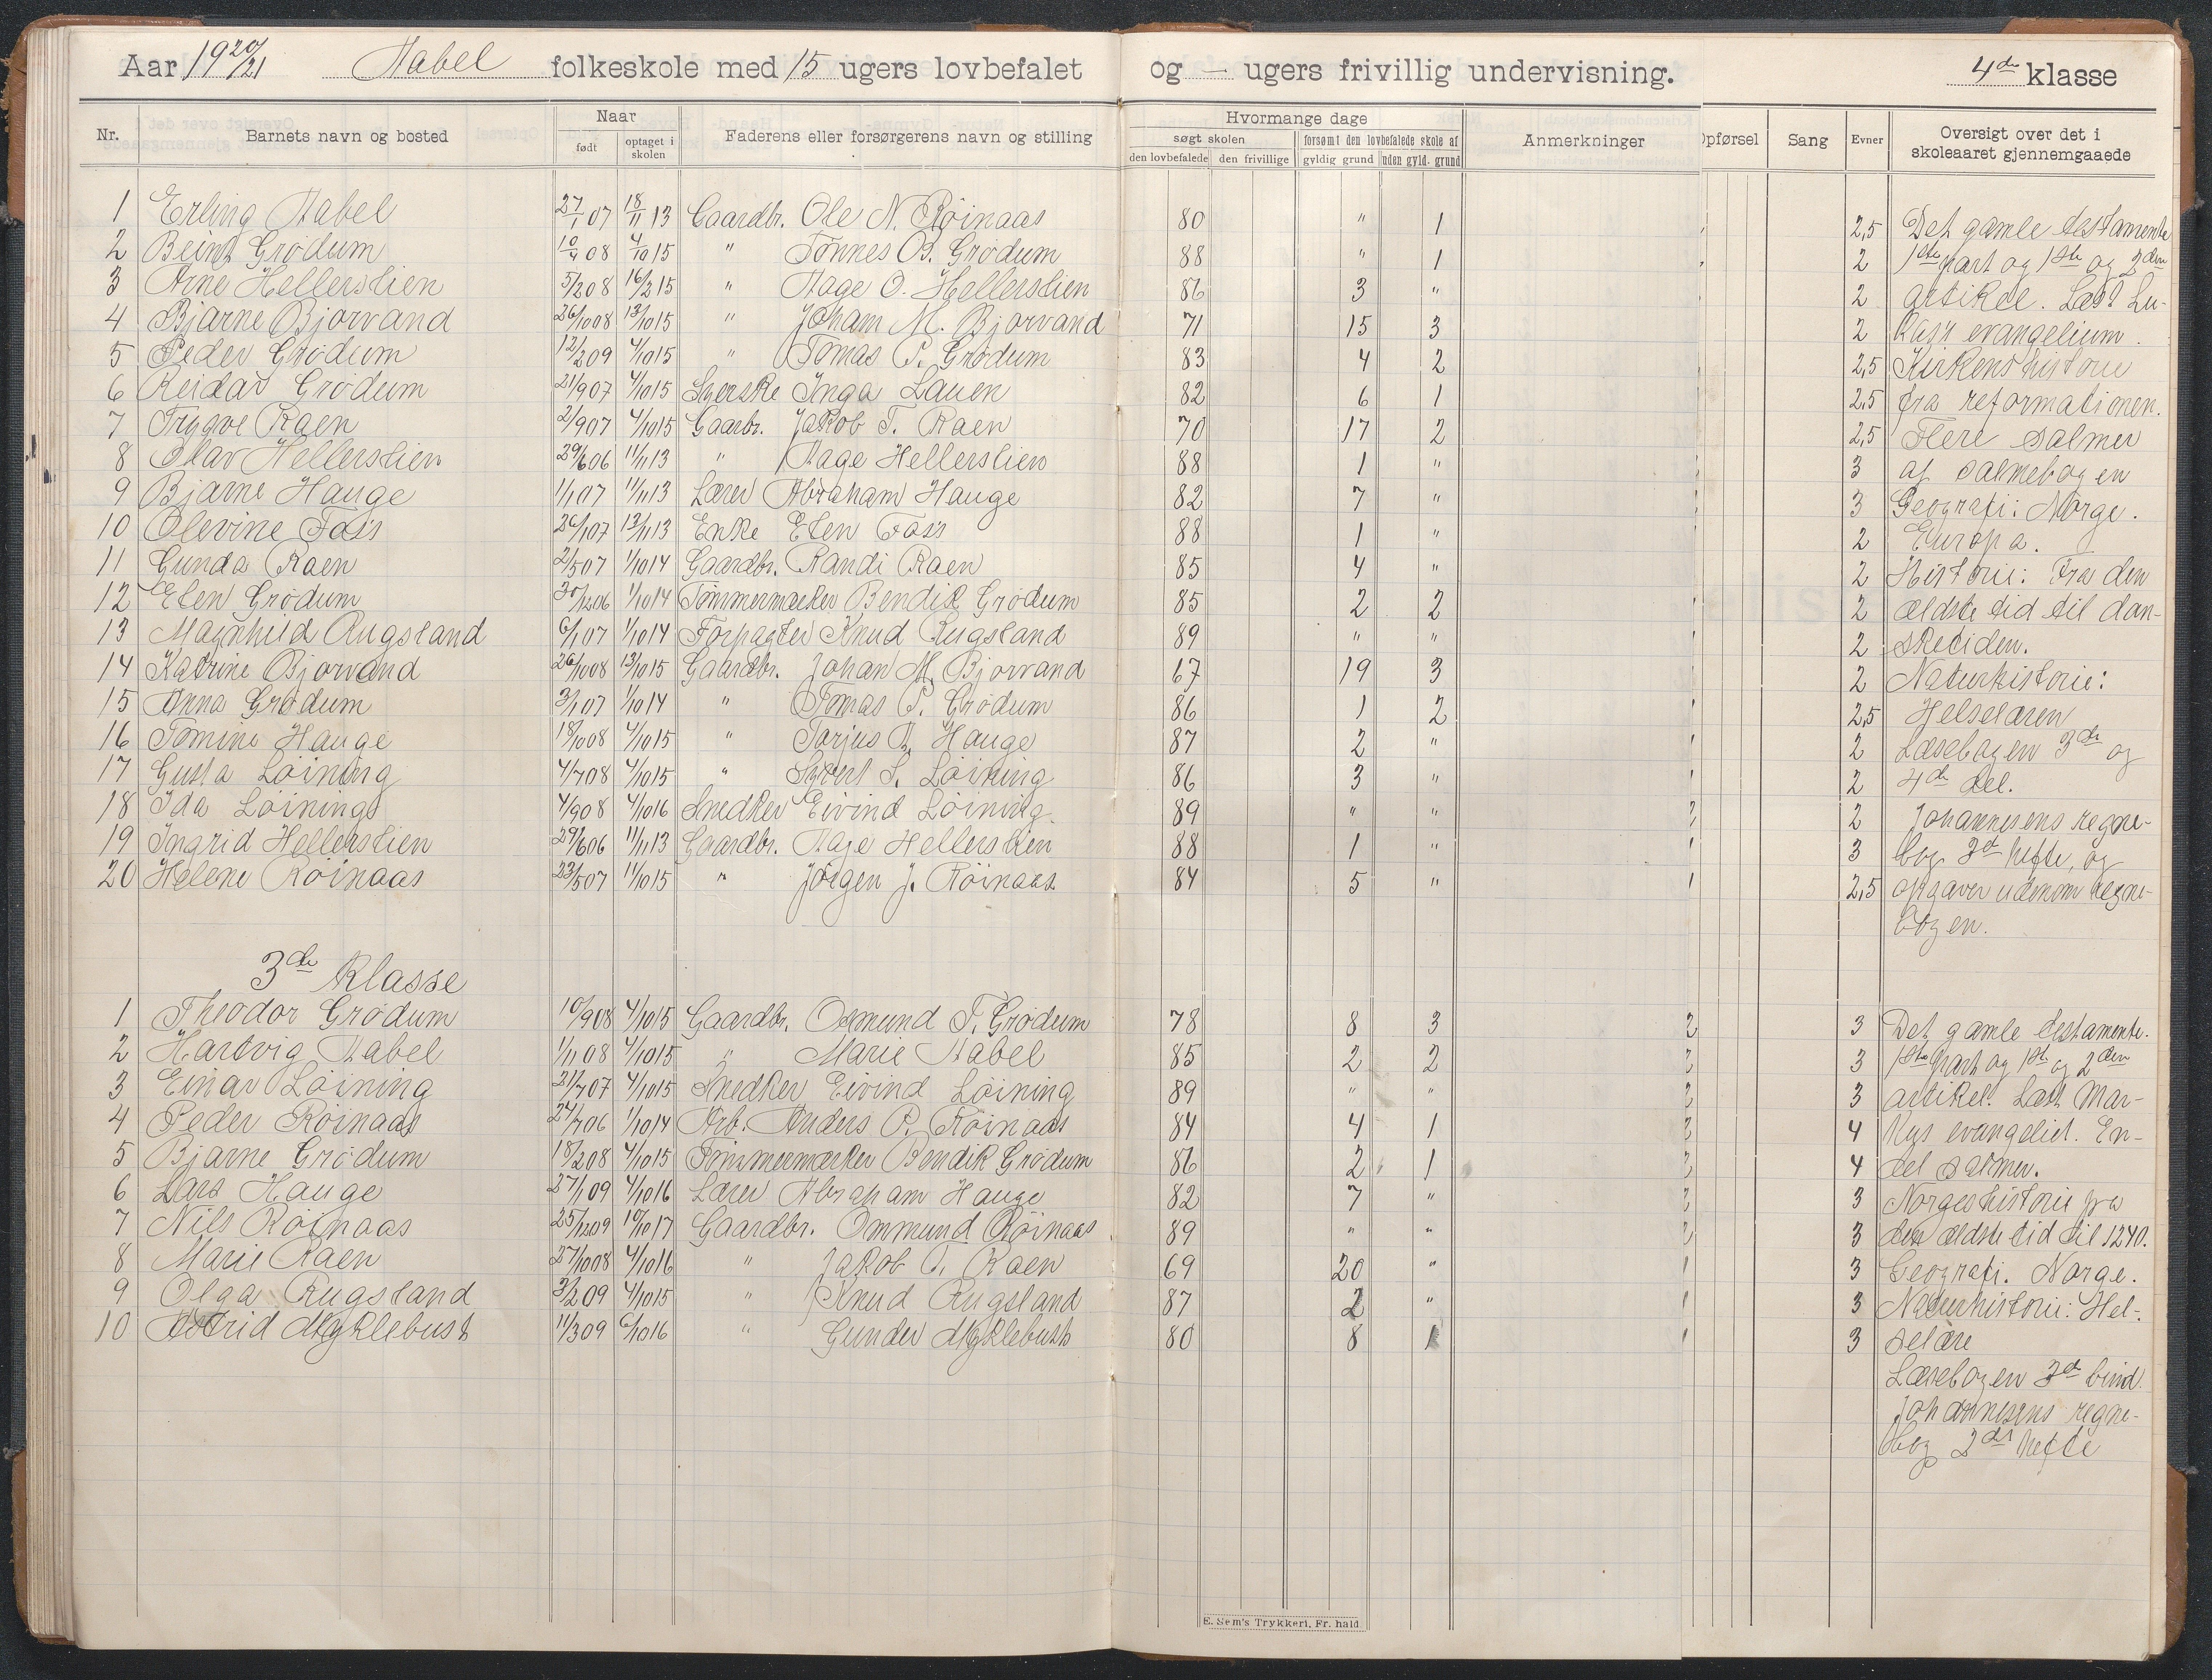 Aar 1920/21 Aabel folkeskole med 15 ugers lovbefalet og — ugers frivillig undervisning. 4de klasse
Nr. Barnets navn og bosted Naar født optaget i skolen Faderens eller forsørgerens navn og stilling Hvormange dage søgt skolen den lovbefalede den frivillige forsømt den lovbefalede skole af gyldig grund uden gyld. grund Anmerkninger Opførsel Sang Evner Oversigt over det i skoleaaret gjennemgaaede
1 Erling Aabel 27/1 07 18/11 13 Gaardbr. Ole N. Röinaas 80 " 1 2,5 Det gamle testamente
2 Beint Grödum 10/4 08 4/10 15 " Tönnes B. Grödum 88 " 1 2 1ste part og 1ste og 2den
3 Arne Hellerslien 5/2 08 16/2 15 " Aage O. Hellerslien 86 3 " 2 artikel. Læst Lu-
4 Bjarne Bjorvand 26/10 08 13/10 15 " Joham M. Bjorvand 71 15 3 2 kas's evangelium.
5 Peder Grödum 12/2 09 4/10 15 " Tomas P. Grödum 83 4 2 2,5 Kirkenshistorie
6 Reidar Grödum 21/9 07 4/10 15 Syerske Inga Lauen 82 6 1 2,5 fra reformationen.
7 Trygve Raen 2/9 07 4/10 15 Gaarbr. Jakob T. Raen 70 17 2 2,5 Flere salmer
8 Olav Hellerslien 29/6 06 11/11 13 " Aage Hellerslien 88 1 " 3 af salmebogen
9 Bjarne Hauge 1/1 07 11/11 13 Lærer Abraham Hauge 82 7 " 3 Geografi: Norge.
10 Olevine Foss 26/1 07 13/11 13 Enke Elen Foss 88 1 " 2 Europa.
11 Gunda Raen 2/5 07 1/10 14 Gaardbr. Randi Raen 85 4 " 2 Historie: Fra den
12 Elen Grödum 30/12 06 1/10 14 Tömmermærker Bendik Grödum 85 2 2 2 ældste tid til dan-
13 Magnhild Rugsland 6/1 07 1/10 14 Forpagter Knud Rugsland 89 " " 2 sketiden.
14 Katrine Bjorvand 26/10 08 13/10 15 Gaardbr. Johan M. Bjorvand 67 19 3 2 Naturhistorie:
15 Anna Grödum 3/1 07 1/10 14 " Tomas P. Grödum 86 1 2 2,5 Helselæren
16 Tomine Hauge 18/10 08 4/10 15 " Torjus A. Hauge 87 2 " 2 Læsebogen 3de og
17 Gusta Löining 4/7 08 4/10 15 " Syvert S. Löining 86 3 " 2 4de del.
18 Ida Löinings 4/9 08 4/10 16 Snedker Eivind Löining. 89 " " 2 Johannesens regne-
19 Ingrid Hellerslien 29/6 06 11/11 13 Gaardbr. Aage Hellerslien 88 1 " 3 bog 3de hefte, og
20 Helene Röinaas 23/5 07 11/10 15 " Jörgen J. Röinaas 84 5 " 2,5 opgaver udenom regne-
bogen.
3de klasse
1 Theodor Grödum 10/9 08 4/10 15 Gaardbr. Osmund T. Grödum 78 8 3 2 3 Det gamle testamente.
2 Hartvig Aabel 1/11 08 4/10 15 " Marie Aabel 85 2 2 2 3 1ste part og 1ste og 2den
3 Einar Löining 21/7 07 4/10 15 Snedker Eivind Löining 89 " " 2 3 artikel. Læst Mar-
4 Peder Röinaas 24/7 06 1/10 14 Arb. Anders P. Röinaas 84 4 1 2 4 kus evangeliet. En-
5 Bjarne Grödum 18/2 08 4/10 15 Tömmermærker Bendik Grödum 86 2 1 2 4 del salmer.
6 Lars Hauge 27/1 09 4/10 16 Lærer Abraham Hauge 82 7 " 2 3 Norgeshistorie fra
7 Nils Röinaas 25/12 09 10/10 17 Gaardbr. Ommund Röinaas 89 " " 2 3 den ældste tid til 1240.
8 Marie Raen 27/10 08 4/10 16 " Jakob T. Raen 69 20 " 1 3 Geografi. Norge.
9 Olga Rugsland 3/2 09 4/10 15 " Knud Rugsland 87 2 " 1 3 Naturhistorie: Hel-
10 Astrid Myklebust 11/3 09 6/10 16 " Gunder Myklebust 80 8 1 1 3 selære
Læsebogen 3de bind.
Johannesens regne-
bog 2det hefte
E. Sem's Trykkeri, Fr. hald